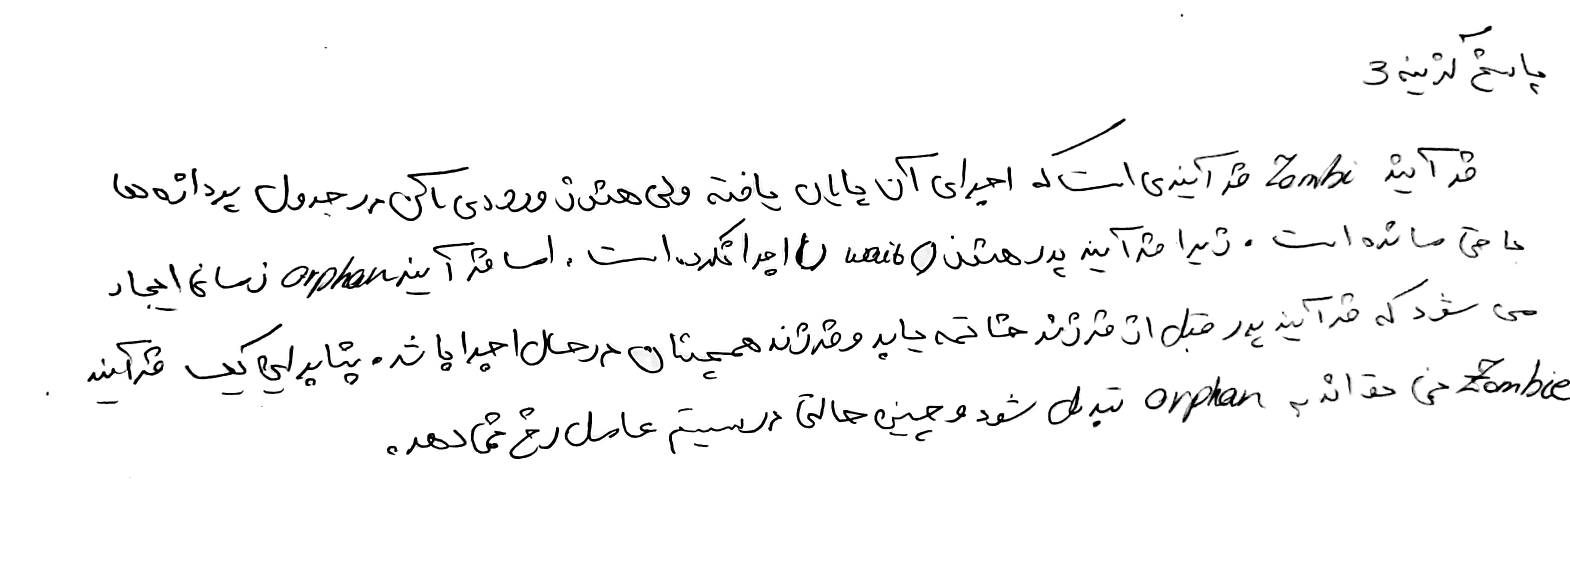 پاسخ گزینه 3
فرآیند Zombi فرآیندی است که اجرای آن پایان یافته ولی هنوز ورودی آن در جدول پردازه ها
باقی مانده است . زیرا فرآیند پدر هنوز wait() را اجرا نکرده است . اما فرآیند orphan زمانی ایجاد
می شود که فرآیند پدر قبل از فرزند خاتمه یابد و فرزند همچنان در حال اجرا باشد . بنابراین یک فرآیند
Zombie نمی تواند به orphan تبدیل شود و چنین حالتی در سیستم عامل رخ نمی دهد .